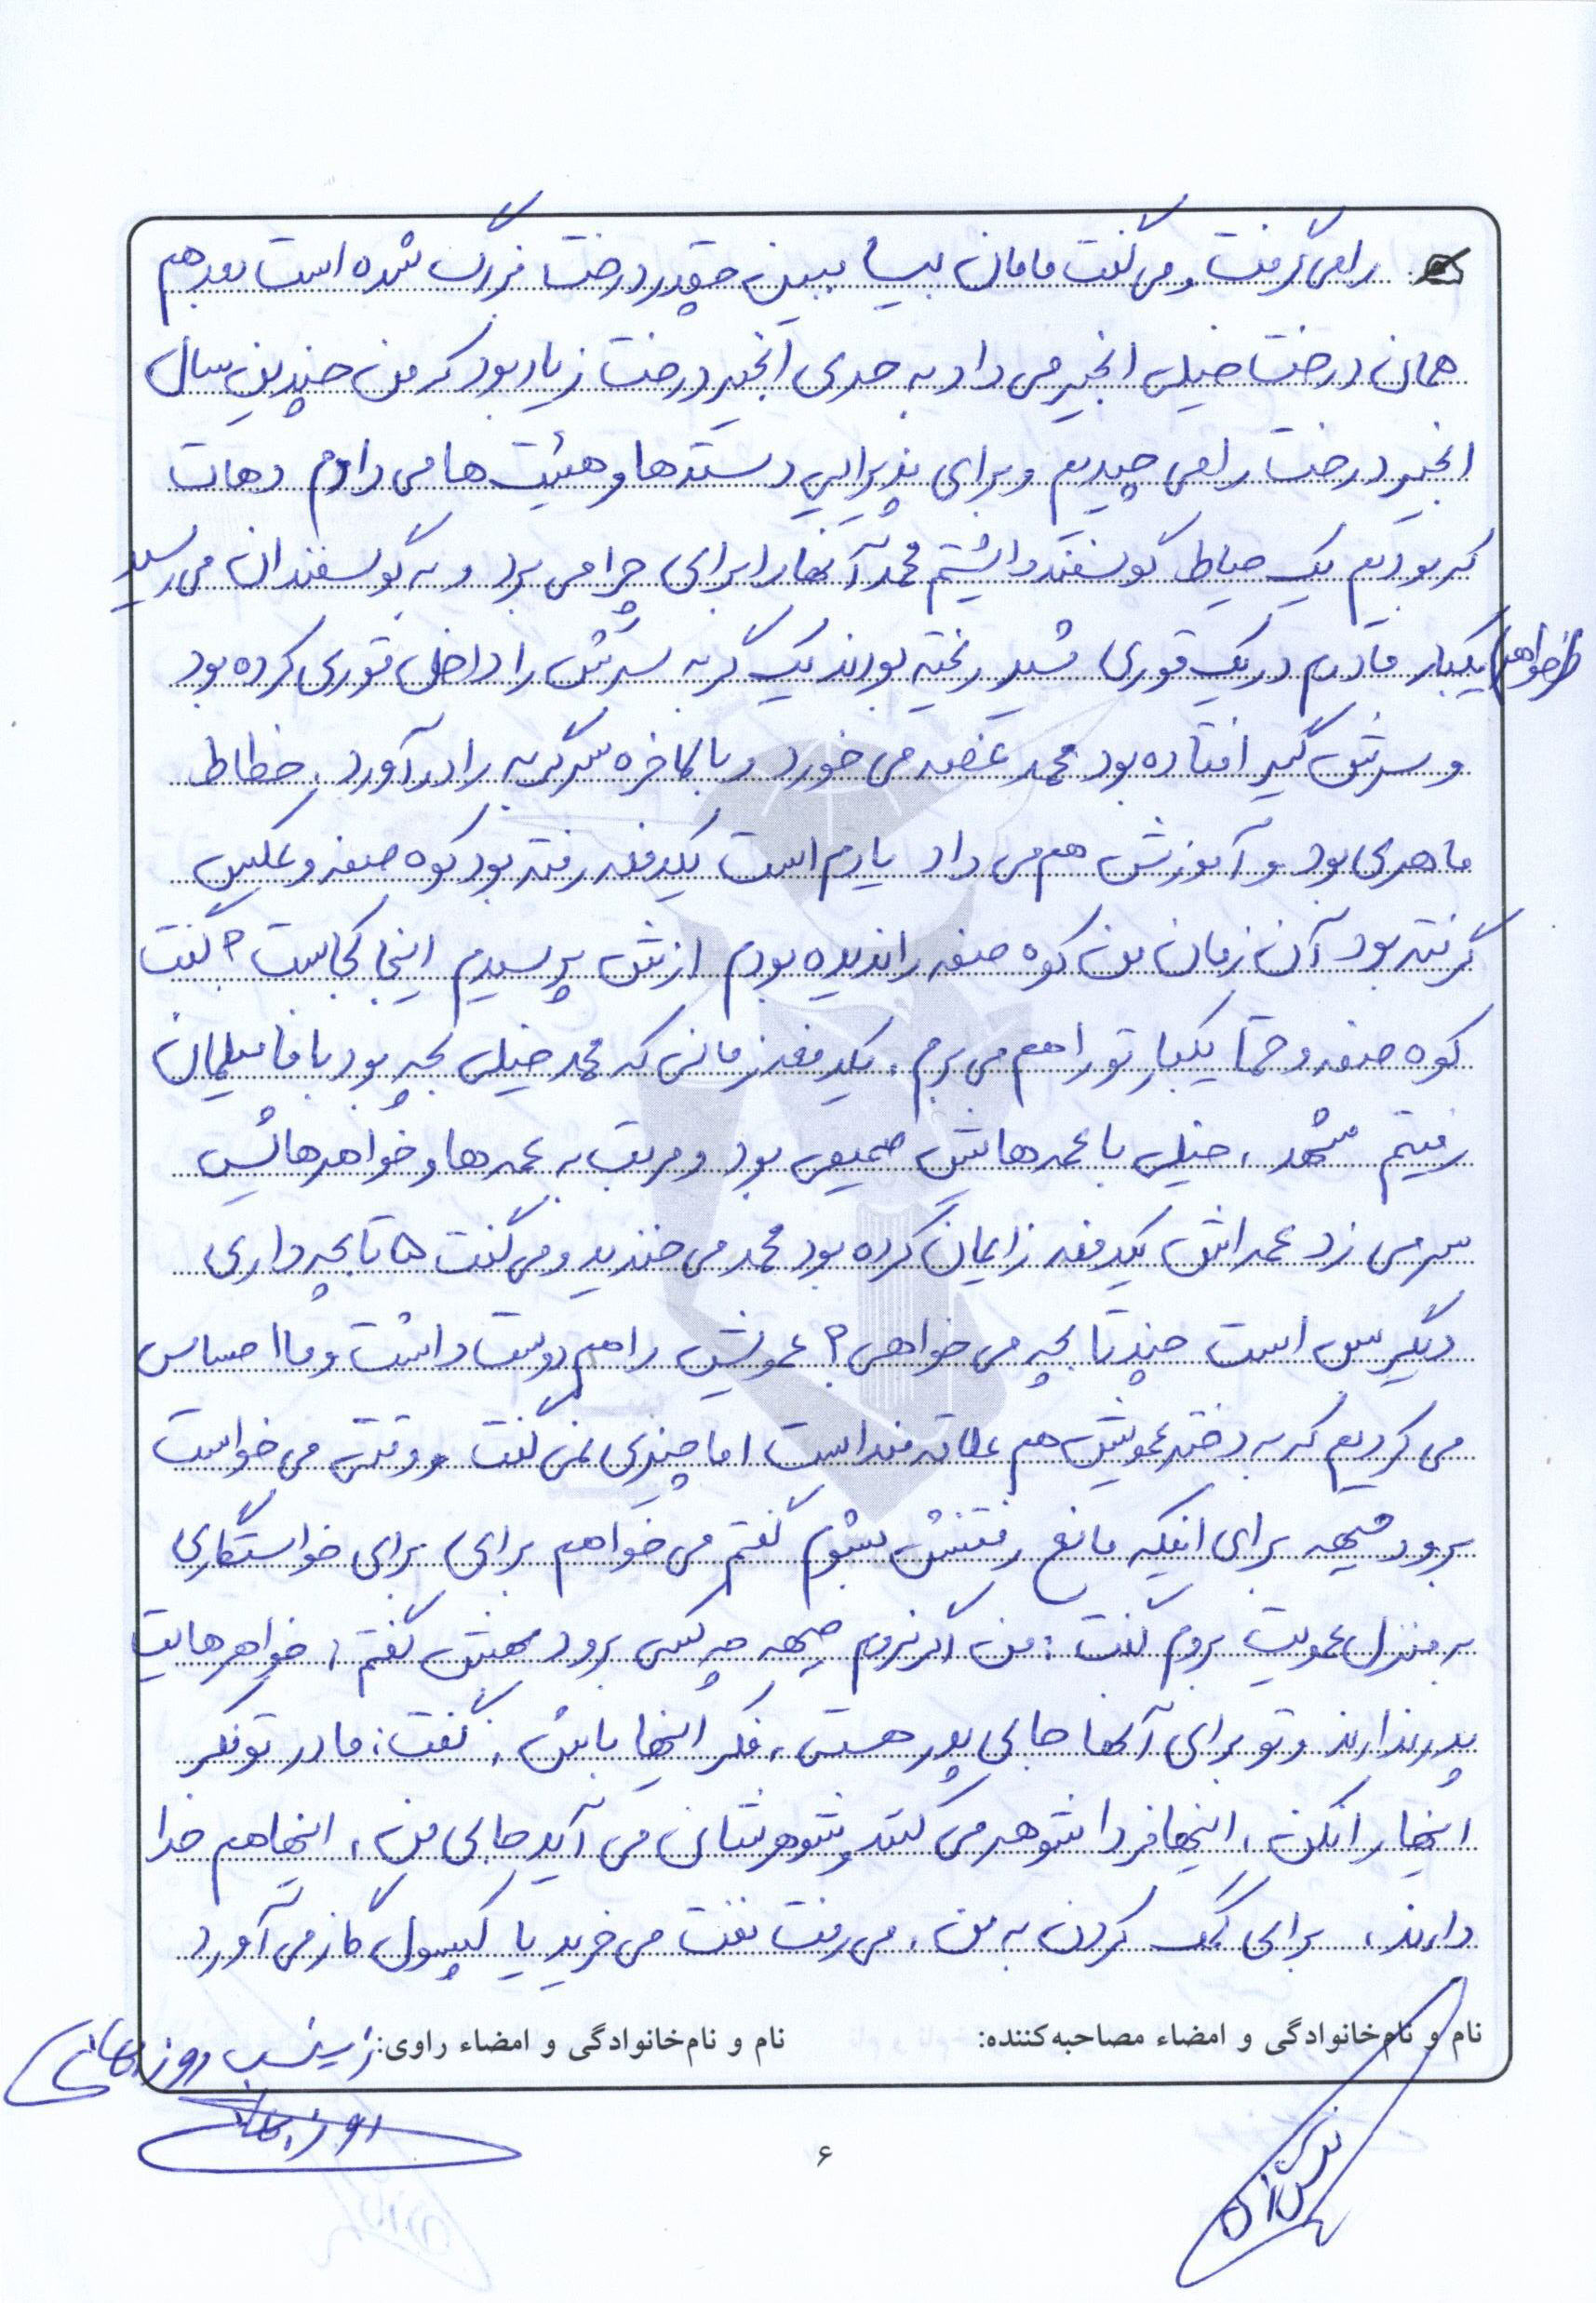 را می گرفت و می گفت مامان بیا ببین چقدر درخت بزرگ شده است بعد هم
همان درخت خیلی انجیر می داد به حدی انجیر درخت زیاد بود که من چندین سال
انجیر درخت را می چیدیم و برای پذیرایی دسته ها و هیئت ها می دادم دهات
که بودیم یک حیاط گوسفند داشتیم محمد آنها را برای چرا می برد و به گوسفندان می رسید
(خواهر) یکبار مادرم در یک قوری شیر ریخته بودند یک گربه سرش را داخل قوری کرده بود
و سرش گیر افتاده بود محمد غصه می خورد و بالاخره سر گربه را در آورد. خطاط
ماهری بود و آموزش هم می داد یادم است یکدفعه رفته بود کوه صفه و عکس
گرفته بود آن زمان من کوه صفه را ندیده بودم ازش پرسیدم اینجا کجاست؟ گفت
کوه صفه و حتماً یکبار تو را هم می برم. یکدفعه زمانی که محمد خیلی بچه بود با فامیلمان
رفتیم مشهد، خیلی با عمه هایش صمیمی بود و مرتب به عمه ها و خواهرهایش
سر می زد عمه اش یکدفعه زایمان کرده بود محمد می خندید و می گفت ۵ تا بچه داری
دیگر بس است چند تا بچه می خواهی؟ عمویش را هم دوست داشت و ما احساس
می کردیم که به دختر عمویش هم علاقه مند است اما چیزی نمی گفت و وقتی می خواست
برود جبهه برای اینکه مانع رفتنش بشوم گفتم می خواهم برای برای خواستگاری
به منزل عمویت بروم گفت: من اگر نروم جبهه چه کسی برود بهش گفتم: خواهرهایت
پدر ندارند و تو برای آنها جای پدر هستی، فکر اینها باش، گفت: مادر تو فکر
اینها را نکن، اینها فردا شوهر می کنند و شوهرشان می آید جای من، اینها هم خدا
دارند، برای کمک کردن به من، می رفت نفت می خرید یا کپسول گاز می آورد
نام و نام‌خانوادگی و امضاء مصاحبه‌کننده: نام و نام‌خانوادگی و امضاء راوی: زینب روزبهانی
روزبهانی
۶